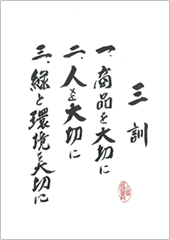 三訓
一、商品を大切に
二、人を大切に
三、緑と環境を大切に